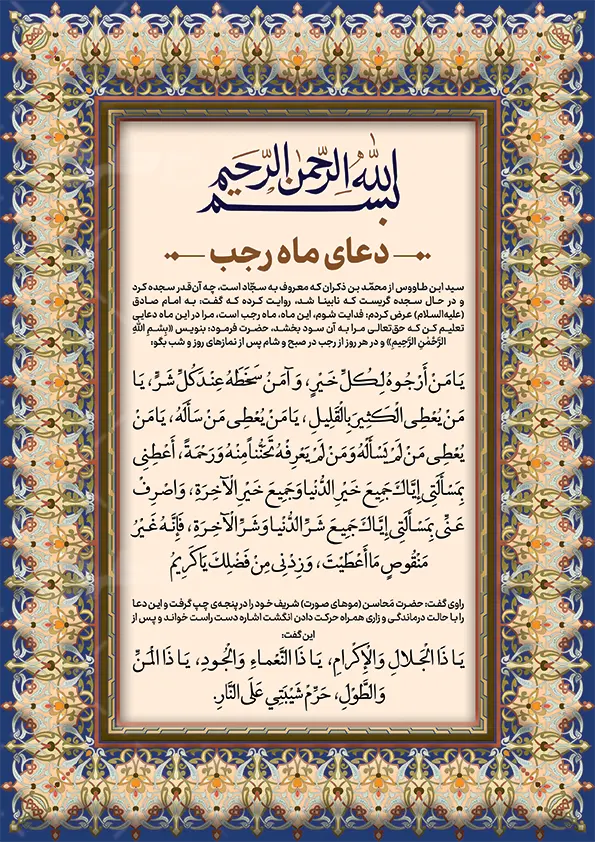 بسم الله الرحمن الرحیم
دعای ماه رجب
سید ابن طاووس از محمّد بن ذکران که معروف به سجّاد است، چه آن‌قدر سجده کرد
و در حال سجده گریست که نابینا شد، روایت کرده که گفت: به امام صادق
(علیه‌السلام) عرض کردم: فدایت شوم، این ماه، ماه رجب است، مرا در این ماه دعایی
تعلیم کن که حق‌تعالی مرا به آن سود بخشد، حضرت فرمود: بنویس «بِسْمِ اللهِ
الرَّحْمَنِ الرَّحِیمِ» و در هر روز از رجب در صبح و شام پس از نمازهای روز و شب بگو:
يَا مَنْ أَرْجُوهُ لِكُلِّ خَيْرٍ، وَ آمَنُ سَخَطَهُ عِنْدَ كُلِّ شَرٍّ، يَا
مَنْ يُعْطِی الْكَثِيرَ بِالْقَلِيلِ، يَا مَنْ يُعْطِی مَنْ سَأَلَهُ، يَا مَنْ
يُعْطِی مَنْ لَمْ يَسْأَلْهُ وَ مَنْ لَمْ يَعْرِفْهُ تَحَنُّناً مِنْهُ وَ رَحْمَةً، أَعْطِنِی
بِمَسْأَلَتِی إِيَّاكَ جَمِيعَ خَيْرِ الدُّنْيَا وَ جَمِيعَ خَيْرِ الْآخِرَةِ، وَ اصْرِفْ
عَنِّی بِمَسْأَلَتِی إِيَّاكَ جَمِيعَ شَرِّ الدُّنْيَا وَ شَرِّ الْآخِرَةِ، فَإِنَّهُ غَيْرُ
مَنْقُوصٍ مَا أَعْطَيْتَ، وَ زِدْنِی مِنْ فَضْلِكَ يَا كَرِيمُ
راوی گفت: حضرت مَحاسن (موهای صورت) شریف خود را در پنجه‌ی چپ گرفت و این دعا
را با حالت درماندگی و زاری همراه حرکت دادن انگشت اشاره دست راست خواند و پس از
این گفت:
يَا ذَا الْجَلالِ وَ الْإِكْرامِ، يَا ذَا النَّعْماءِ وَ الْجُودِ، يَا ذَا الْمَنِّ
وَ الطَّوْلِ، حَرِّمْ شَيْبَتِي عَلَى النَّارِ.